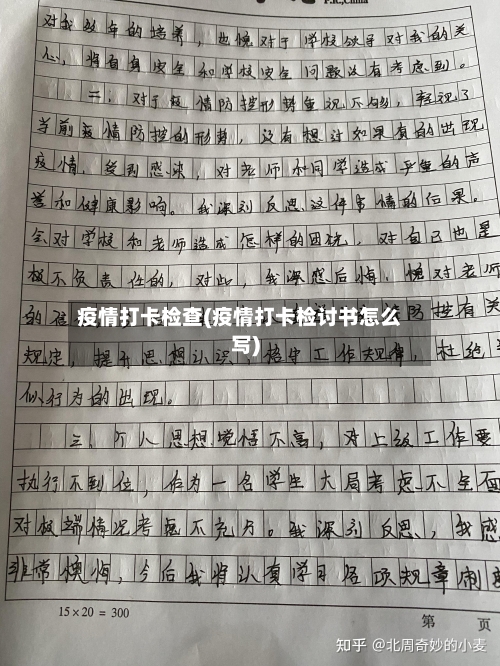 P.R.,China
对我数年的培养，也愧对于学校领导对我的关
心，将自身安全和学校安全问题没有考虑到。
二、对于疫情防控形势重视不够，轻视了
当前疫情防控的形势，没有想过如果真的出现
疫情，受到感染，对老师和同学造成严重的声
誉和健康影响。我深刻反思这件事情的后果。
会对学校和老师造成怎样的困扰，对自己也是
极不负责任的，对此，我深感后悔，愧对老师
的
防控有关
疫情打卡检查(疫情打卡检讨书怎么
写)
规定，提升思想认识，恪守工作规律，杜绝
似行为的出现。
三、个人思想觉悟不高，对上级工作要
执行不到位，作为一名学生大局考虑不全面
对极端情况考虑不充分。我深刻反思，我感
非常懊悔，今后我将认真学习各项规章制度
15×20=300
第 页
知乎 @北周奇妙的小麦